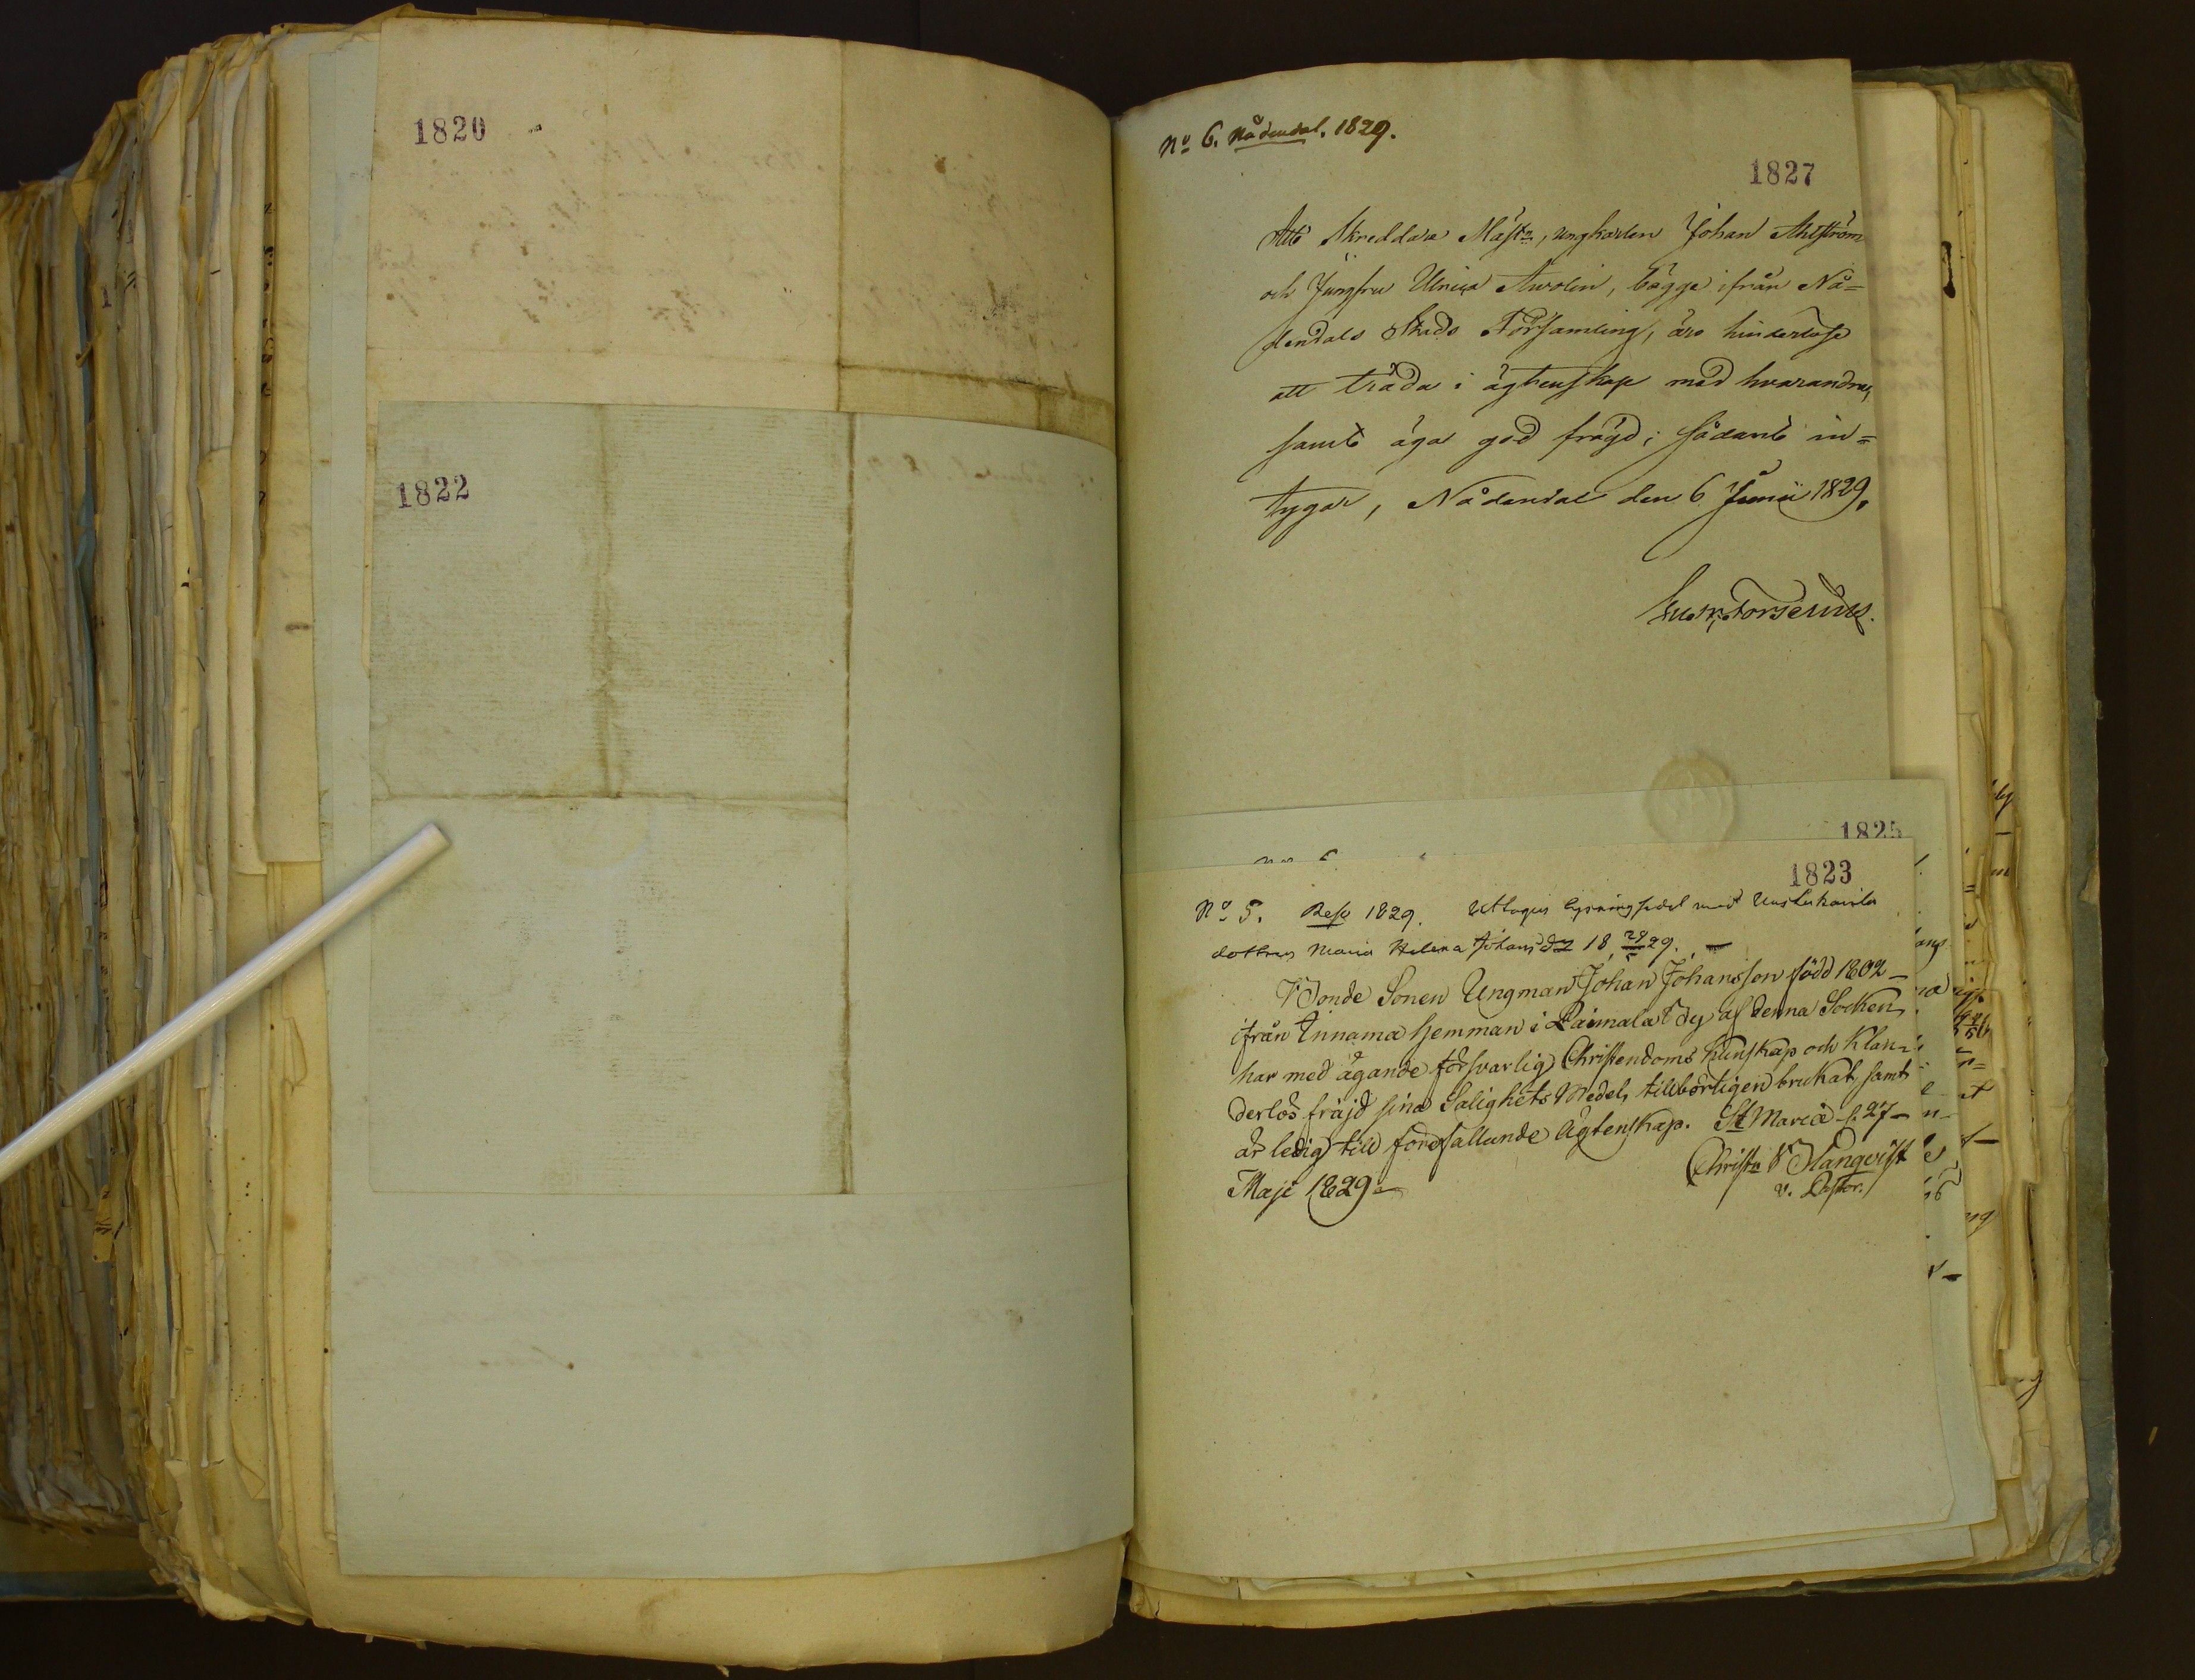 1820
1822
No 6. Nådendal. 1829.
1827
Att Skreddare Mäst:n, ungkarlen Johan Ahlström
och Jungfru Ulrica Awolin, begge ifrån Nå=
dendals Stads Församling, äro hinderlöse
att träda i ägtenskap med hvarandra,
samt äga god frägd; sådant in=
tygar, Nådendal den 6 Junii 1829.
Gust. Forselius.
1825
1823
No 5. Reso 1829. Uttagen lysningssedel med
dottren Maria Helena Johansdr 18 29.
Bonde Sonen Ungman Johan Johansson född 1802
ifrån Innama hemman i Raimala by af denna Socken,
har med ägande försvarlig Christendoms kunskap och klan=
derlös fräjd sina Salighets Medel, tillbörligen brukat, samt
är ledig till förefallande Ägtenskap. St Mariæ d. 27
Maji 1829.
Christn Hanqvist
v. Pastor.